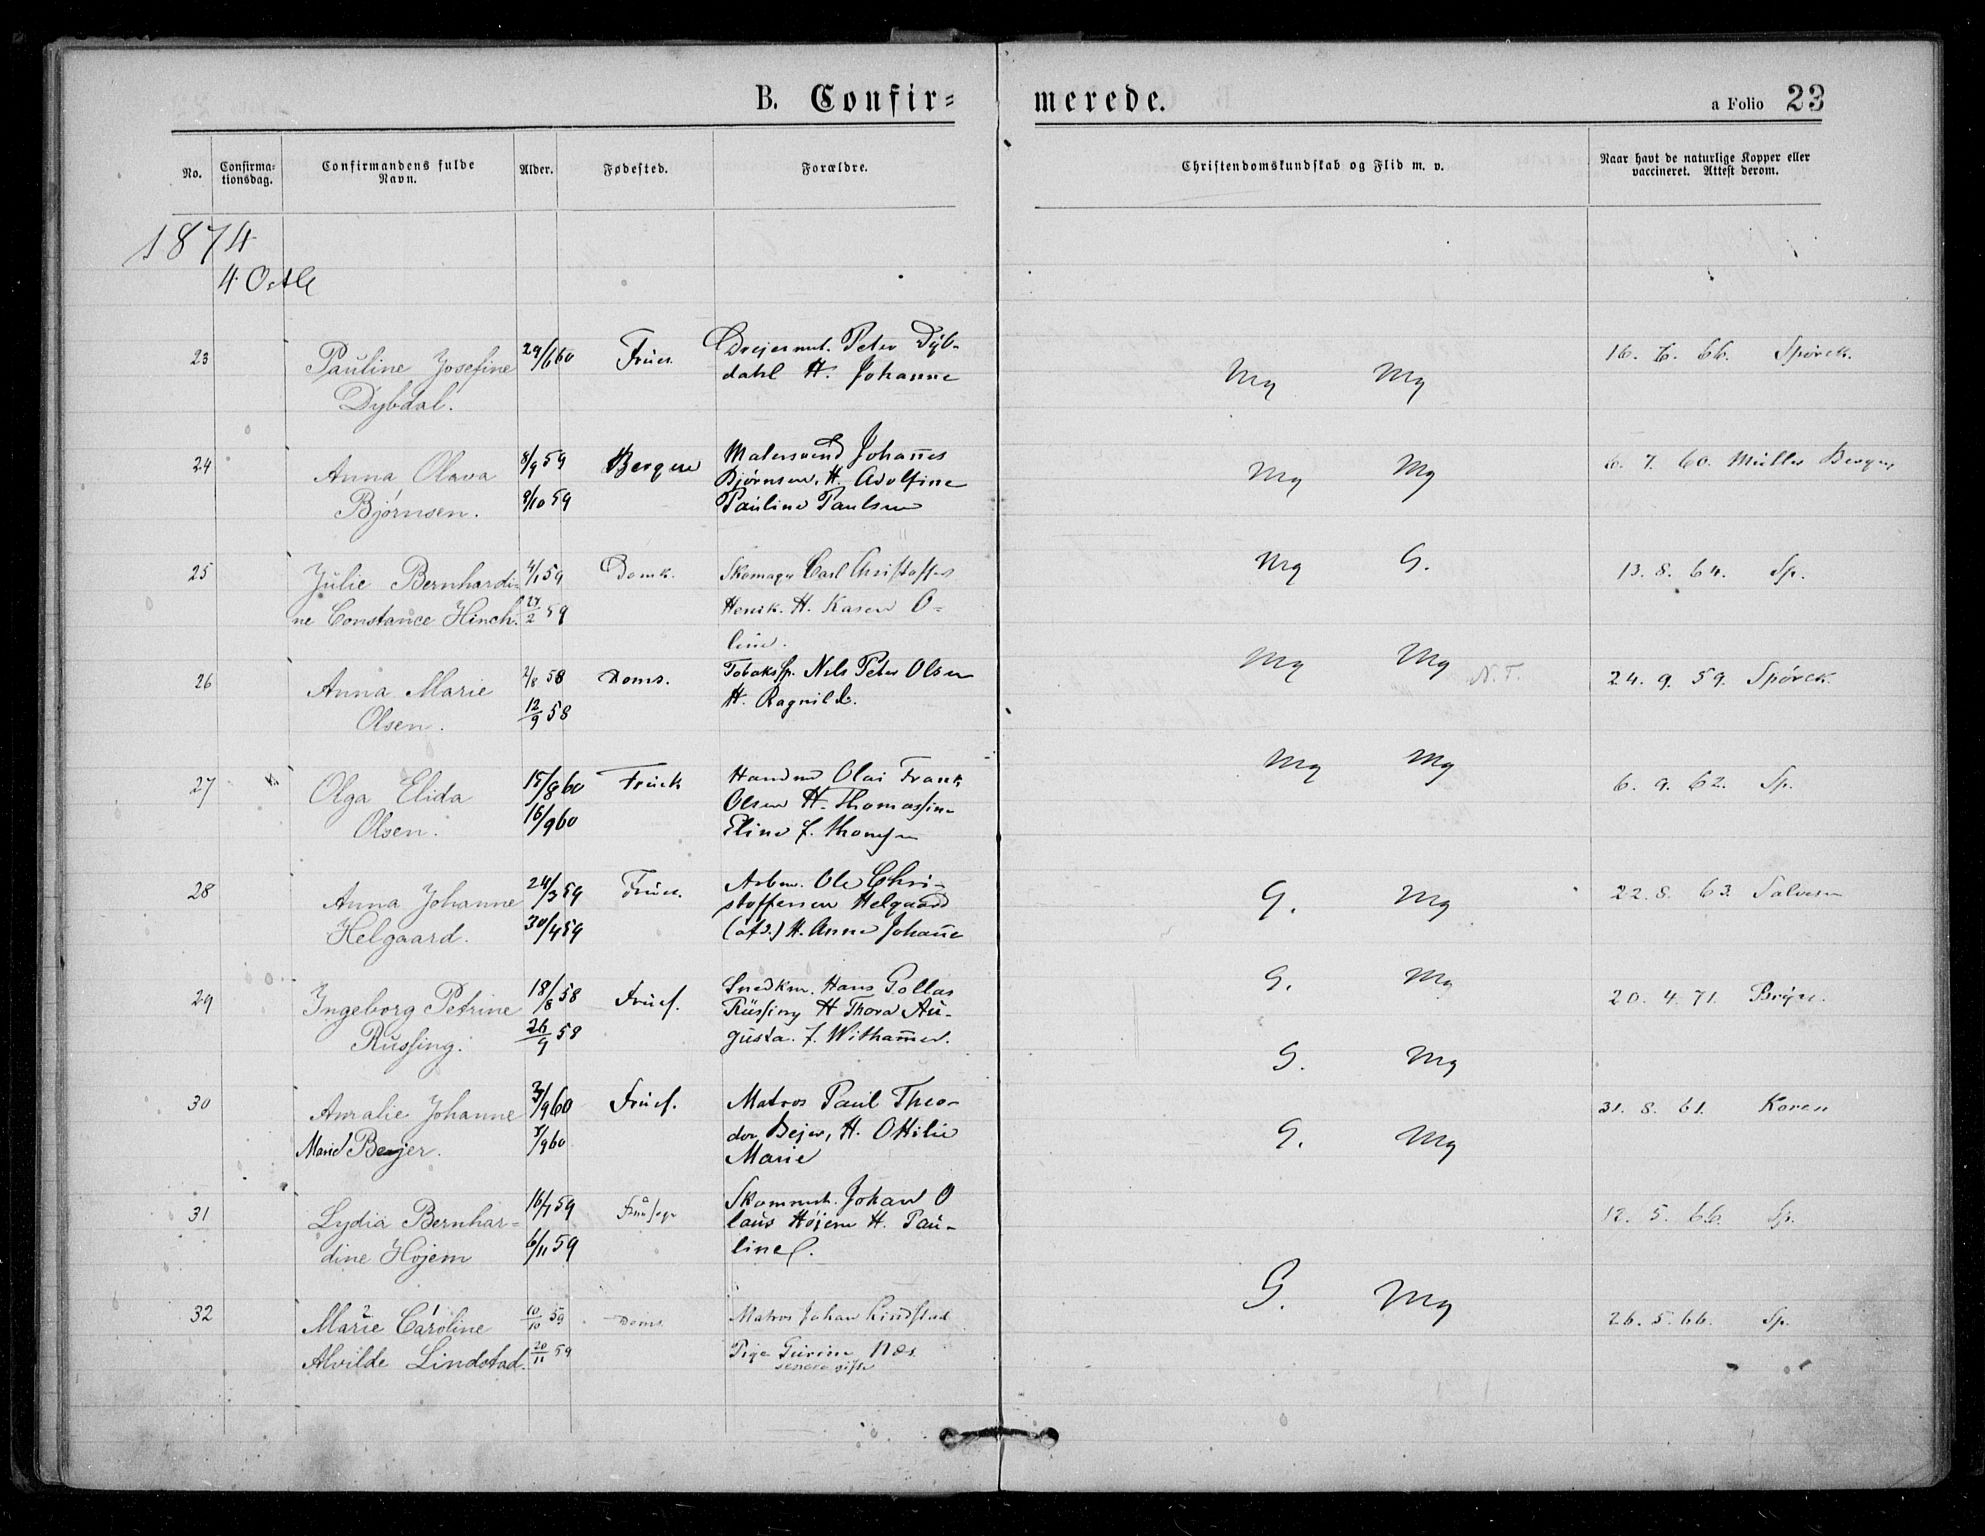 B. Confir=
merede.
a Folio 23
No.
Confirma=
tionsdag.
Confirmandens fulde
Navn.
Alder.
Fødested.
Forældre.
Christendomskundskab og Flid m. v.
Naar havt de naturlige Kopper eller
vaccineret. Attest derom.
1874
4 Octbr
23 Pauline Josefine 29/6 60 Drejermst. Peter Dyb- Mg Mg 16. 6. 66. Spörck.
Dybdal. dahl H. Johanne
24 Anna Olava 8/9 59 Bergen Malersvend Johannes Mg Mg 6. 7. 60. Müller Bergen
Bjørnsen. 9/10 59 Bjørnsen, H. Adolfine
Pauline Paulsen
25 Julie Bernhardi= 4/1 59 Domk. Skomager Carl Christoffer Mg G. 13. 8. 64. Sp.
ne Constance Hinch. 27/2 59 Henik. H. Karen O=
line.
26 Anna Marie 2/8 58 Doms. Nils Peter Olsen Mg Mg N. T. 24. 9. 59. Spörck.
Olsen. 12/9 58 H. Ragnild.
27 Olga Elida 15/8 60 Fruek Olai Frank Mg Mg 6. 9. 62. Sp.
Olsen. 16/9 60 Olsen H. Thomassine
Eline f.
28 Anna Johanne 24/3 59 Arbm. Ole Chri- G. Mg 22. 8. 63. Salvesen
Helgaard. 30/4 59 stoffersen Helgaard
H. Anne Johanne
29 Ingeborg Petrine 18/8 58 Fruef. Snedkm. Hans G. Mg 20. 4. 71.
Russing. 26/9 58 Russing H Thora Au-
gusta. f.
30 Johanne 3/9 60 Fruef. Matros Paul Theo- G. Mg 31. 8. 61. Koren
Marie Bejer. 9 60 dor Bejer, H. Ottilie
Marie
G. Mg
31 Lydia Bernhar= 16/7 59 Skommst. Johan O 12. 5. 66. Sp.
dine Højem 6/11 59 laus Højem H. Pau-
line
32 Marie Caroline 10/10 59 Doms Matros Johan Lindstad G. Mg 26. 5. 66. Sp.
Alvilde Lindstad. 20/11 59 Pige Gurine Næs
senere gift